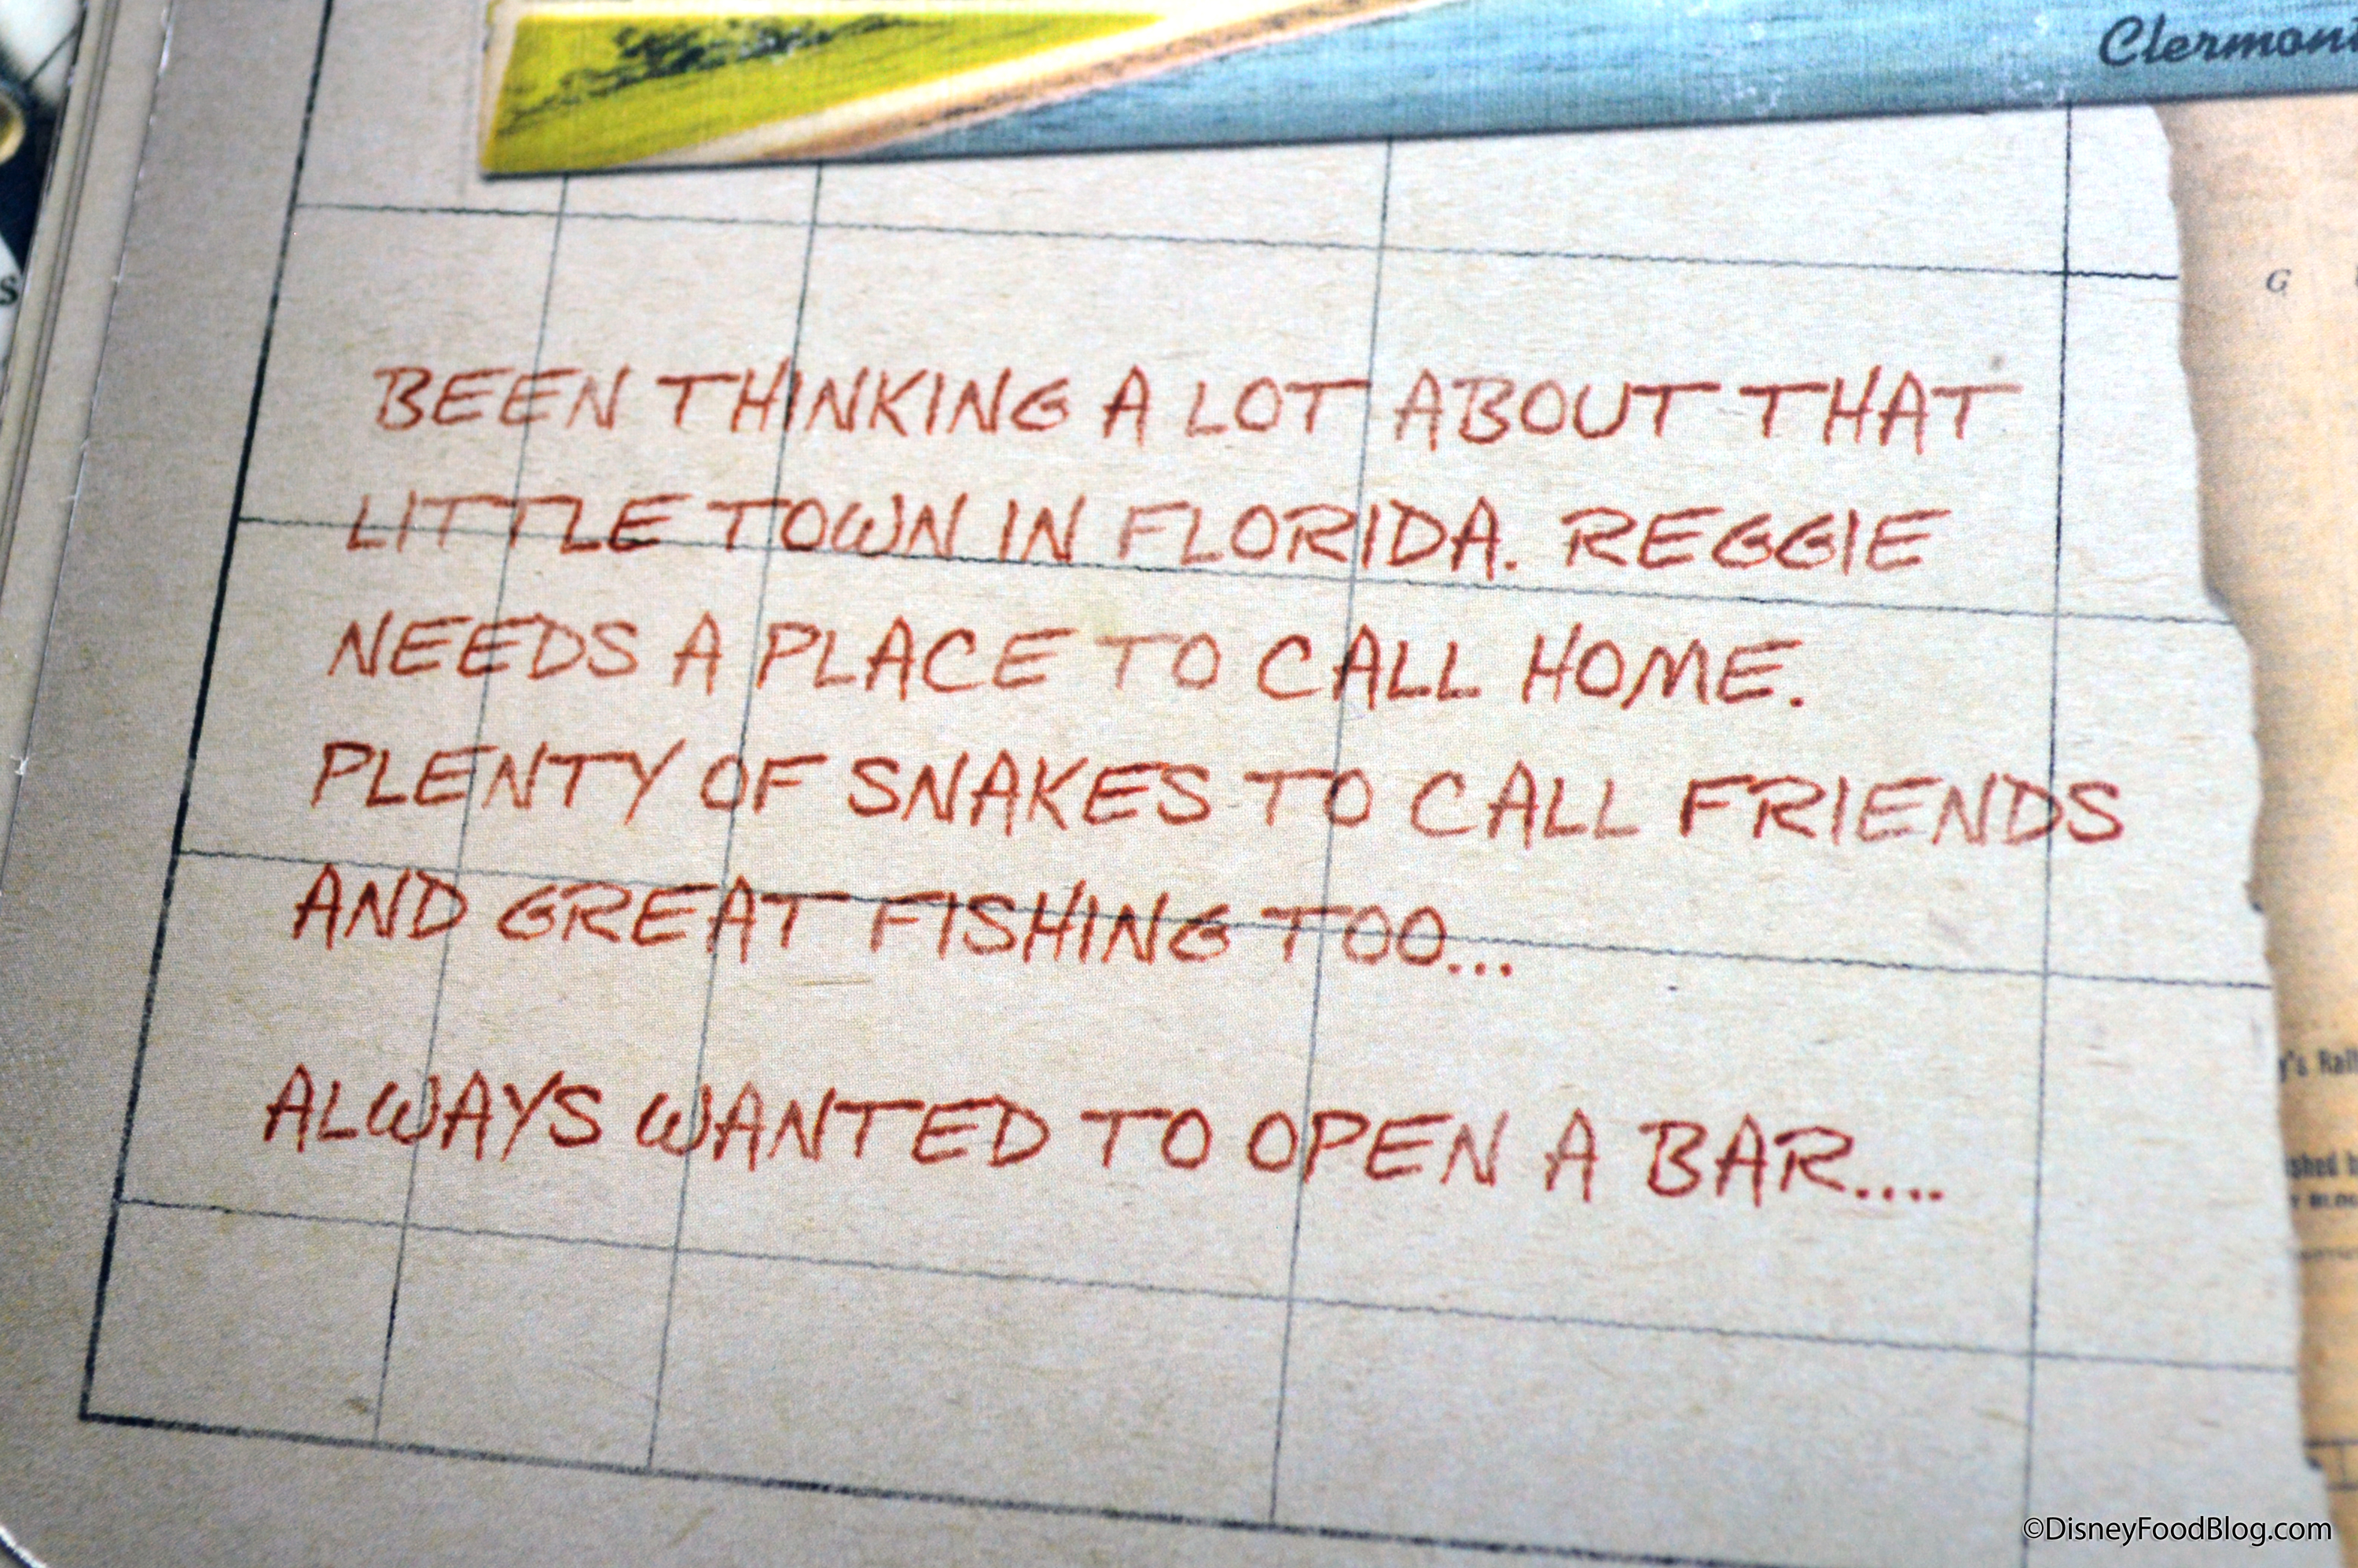 Clermont
G
BEEN THINKING A LOT ABOUT THAT
LITTLE TOWN IN FLORIDA. REGGIE
NEEDS A PLACE TO CALL HOME.
PLENTY OF SNAKES TO CALL FRIENDS
AND GREAT FISHING TOO...
ALWAYS WANTED TO OPEN A BAR....
©DisneyFoodBlog.com